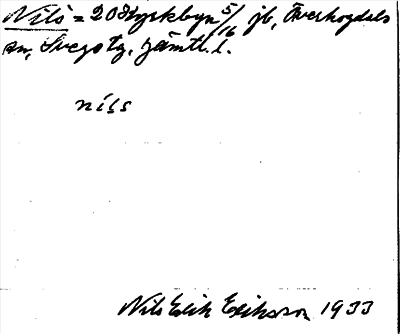 Nils = 20 Styrkbyn 5/16 jb, Överhogdals
sn, Svegs tg, Jämtl. l.
nils
Nils Erik Eriksson 1933